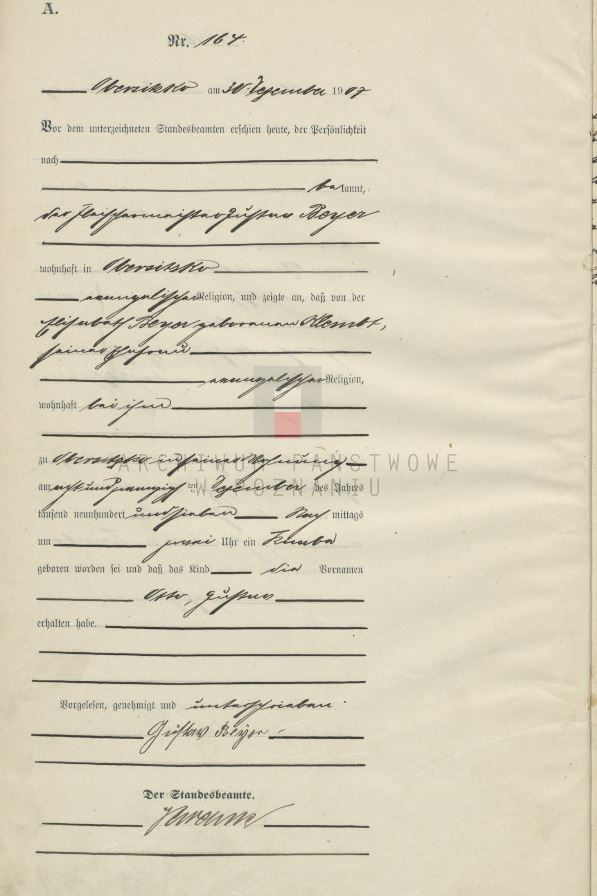 A.
Nr. 164.
Obersitzko am 30. Dezember 1907
Vor dem unterzeichneten Standesbeamten erschien heute, der Persönlichkeit
nach
bekannt,
der Fleischermeister Gustav Beyer
wohnhaft in Obersitzko
evangelischer Religion, und zeigte an, daß von der
Elisabeth Beyer geborenen Klembt,
seiner Ehefrau
evangelischer Religion,
wohnhaft bei ihm
zu Obersitzko in seiner Wohnung
am acht und zwanzigsten Dezember des Jahres
tausend neunhundert und sieben Nachmittags
um zwei Uhr ein Knabe
geboren worden sei und daß das Kind die Vornamen
Otto, Gustav
erhalten habe.
Vorgelesen, genehmigt und unterschrieben
Gustav Beyer
Der Standesbeamte.
ARCHIWUM PAŃSTWOWE
W POZNANIU